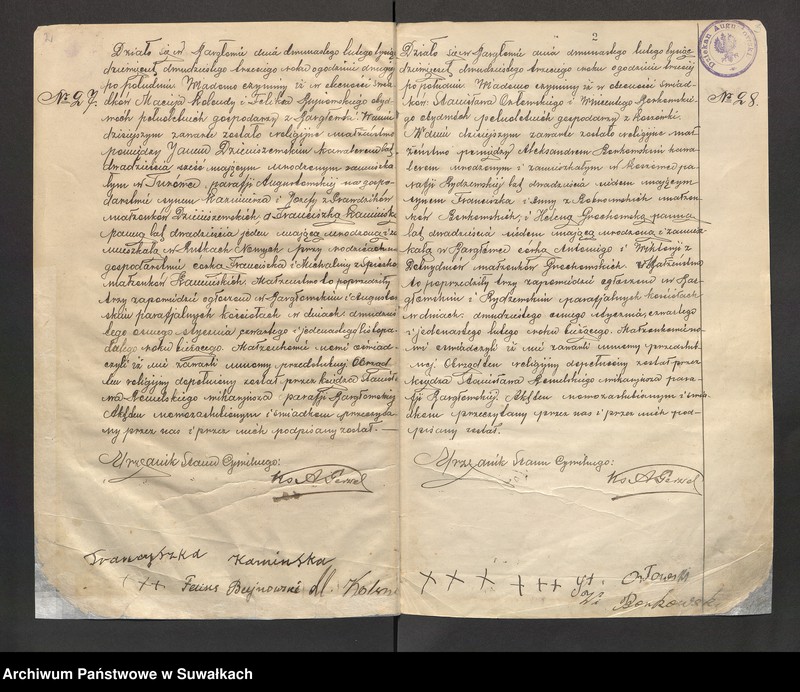 Działo się w Bargłowie dnia dwunastego lutego tysiąc
dziewięćset dwudziestego trzeciego roku o godzinie drugiej
po południu. Wiadomo czynimy iż w obecności świad-
ków Macieja Kolendy i Feliksa obyd-
wóch pełnoletnich gospodarzy z Bargłowa. W dniu
№ 27.
dzisiejszym zawarte zostało religijne małżeństwo
pomiędzy Janem kawalerem lat
dwadzieścia sześć mającym urodzonym zamieszka-
łym w parafji Augustowskiej na gospo-
darstwie synem Kazimierza i Józefy z
małżonków a Franciszką Kamińską
panną lat dwadzieścia jeden mającą urodzoną i za-
mieszkałą w Rutkach Nowych przy rodzicach na
gospodarstwie córką Franciszka i Michaliny z
małżonków Kamińskich. Małżeństwo to poprzedziły
trzy zapowiedzi ogłoszone w Bargłowskim i Augustow-
skim parafjalnych kościołach w dniach: dwudzies-
tego ósmego stycznia czwartego i jedenastego
lutego roku bieżącego. Małżonkowie nowi oświad-
czyli iż nie zawarli umowy przedślubnej. Obrząd-
ek religijny dopełniony został przez księdza Stanisła-
wa wikarjusza parafji Bargłowskiej
Akt ten nowozaślubionym i świadkom przeczyta-
ny przez nas i przez nich podpisany został. —
Urzędnik Stanu Cywilnego:
Ks. A.
Franciszka Kamińska
+++ Feliks Bujnowski M. Kolen
2
Działo się w Bargłowie dnia dwunastego lutego tysiąc
dziewięćset dwudziestego trzeciego roku o godzinie trzeciej
po południu. Wiadomo czynimy iż w obecności świad-
ków: Stanisława Orłowskiego i Wincentego Borkowskie-
go obydwóch pełnoletnich gospodarzy z
№ 28.
W dniu dzisiejszym zawarte zostało religijne mał-
żeństwo pomiędzy Aleksandrem Borkowskim kawa-
lerem urodzonym i zamieszkałym w pa-
rafji Rydzewskiej lat dwadzieścia siedem mającym
synem Franciszka i Anny z małżon-
ków Borkowskich, i Heleną Grochowską panną
lat dwadzieścia siedem mającą urodzoną i zamiesz-
kałą w Bargłowie córką Antoniego i Wiktorji z
małżonków Grochowskich. Małżeństwo
to poprzedziły trzy zapowiedzi ogłoszone w Bar-
głowskim i Rydzewskim parafjalnych kościołach
w dniach: dwudziestego ósmego stycznia, czwartego
i jedenastego lutego roku bieżącego. Małżonkowie no-
wi oświadczyli iż nie zawarli umowy przedślub-
nej. Obrządek religijny dopełniony został przez
księdza Stanisława wikarjusza para-
fji Bargłowskiej. Akt ten nowozaślubionym i świa-
dkom przeczytany przez nas i przez nich pod-
pisany został.
Urzędnik Stanu Cywilnego:
Ks. A.
+++ +++ St. Orłowski
Wi Borkowski
Archiwum Państwowe w Suwałkach